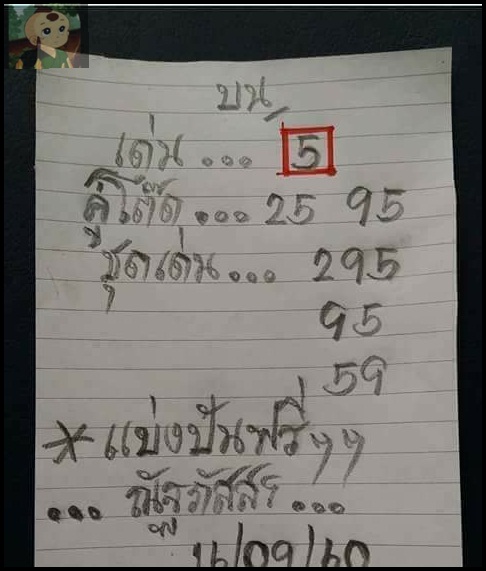 บน
เด่น ... 5
คู่โต๊ด ... 25 95
ชุดเด่น ... 295
95
59
* แบ่งปันฟรีๆๆ
... ณัฐภัสสร ...
16/09/60